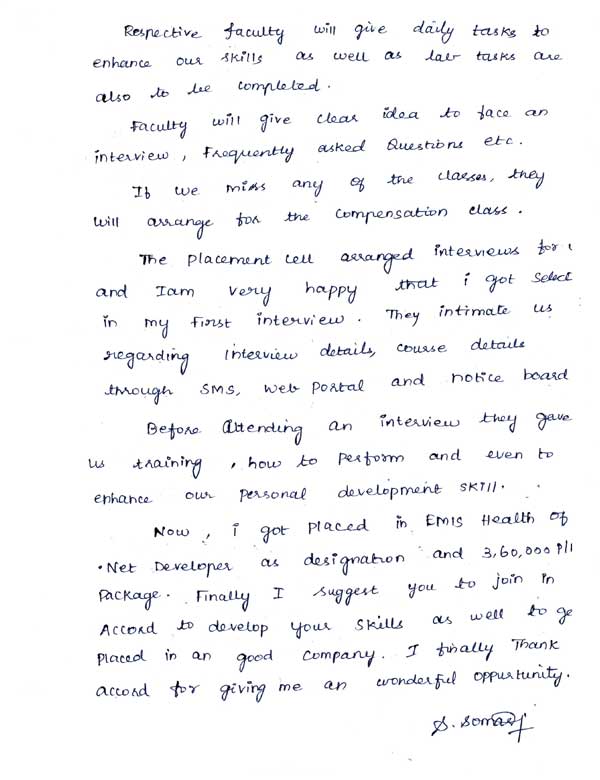 Respective faculty will give daily tasks to
enhance our skills as well as lab tasks are
also to be completed.
Faculty will give clear idea to face an
interview, Frequently asked Questions etc.
If we miss any of the classes, they
will arrange for the compensation class.
The placement cell arranged interviews for
and Iam very happy that i got select
in my first interview. They intimate us
regarding interview details, course details
through SMS, web portal and notice board
Before attending an interview they gave
us training, how to perform and even to
enhance our personal development skill.
Now, i got placed in EMIS Health of
.Net Developer as designation and 3,60,000
Package. Finally I suggest you to join in
Accord to develop your skills as well to ge
Placed in an good company. I finally Thank
accord for giving me an wonderful oppurtunity.